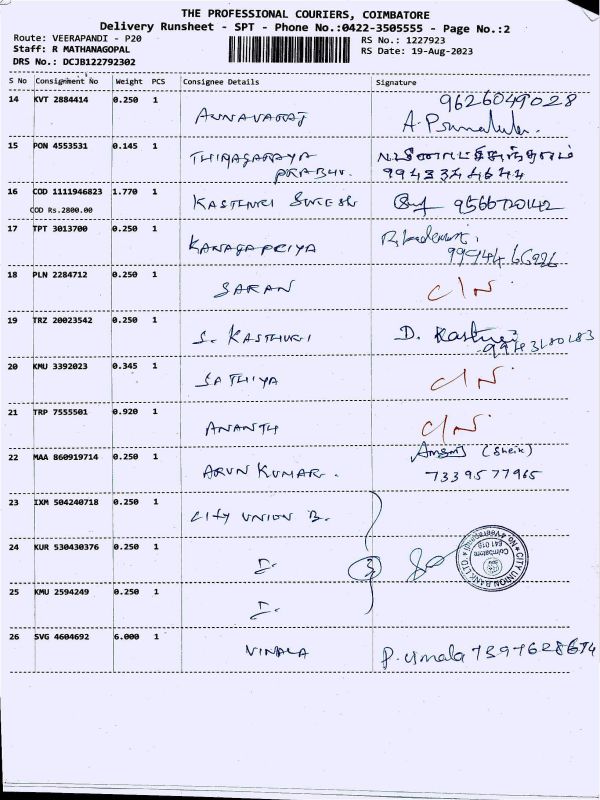 THE PROFESSIONAL COURIERS, COIMBATORE
Delivery Runsheet - SPT - Phone No.:0422-3505555 - Page No.:2
Route: VEERAPANDI - P20
RS No.: 1227923
Staff: R MATHANAGOPAL
RS Date: 19-Aug-2023
DRS No.: DCJB122792302
S No Consignment No Weight PCS Consignee Details Signature
9626049028
14 KVT 2884414 0.250 1 ARNAVARAJ
15 PON 4553531 0.145 1 THIYAGARAYA
PRABHU.
9943344644
16 COD 1111946823 1.770 1 KASTHURI SURESH 9566720142
COD Rs.2800.00
17 TPT 3013700 0.250 1 KANAGAPRIYA
18 PLN 2284712 0.250 1 SARAN C/N
19 TRZ 20023542 0.250 1 S. KASTHURI D. Kasturi
9943180183
20 KMU 3392023 0.345 1 SATHIYA C/N
21 TRP 7555501 0.920 1 ANANTH C/N
22 MAA 860919714 0.250 1 ARUN KUMAR. (Sheik)
7339577965
23 IXM 504240718 0.250 1 CITY UNION B.
24 KUR 530430376 0.250 1 3
CITY UNION BANK LTD.
Coimbatore
641 019
25 KMU 2594249 0.250 1
26 SVG 4604692 6.000 1 VIMALA P. Umala 7397628674